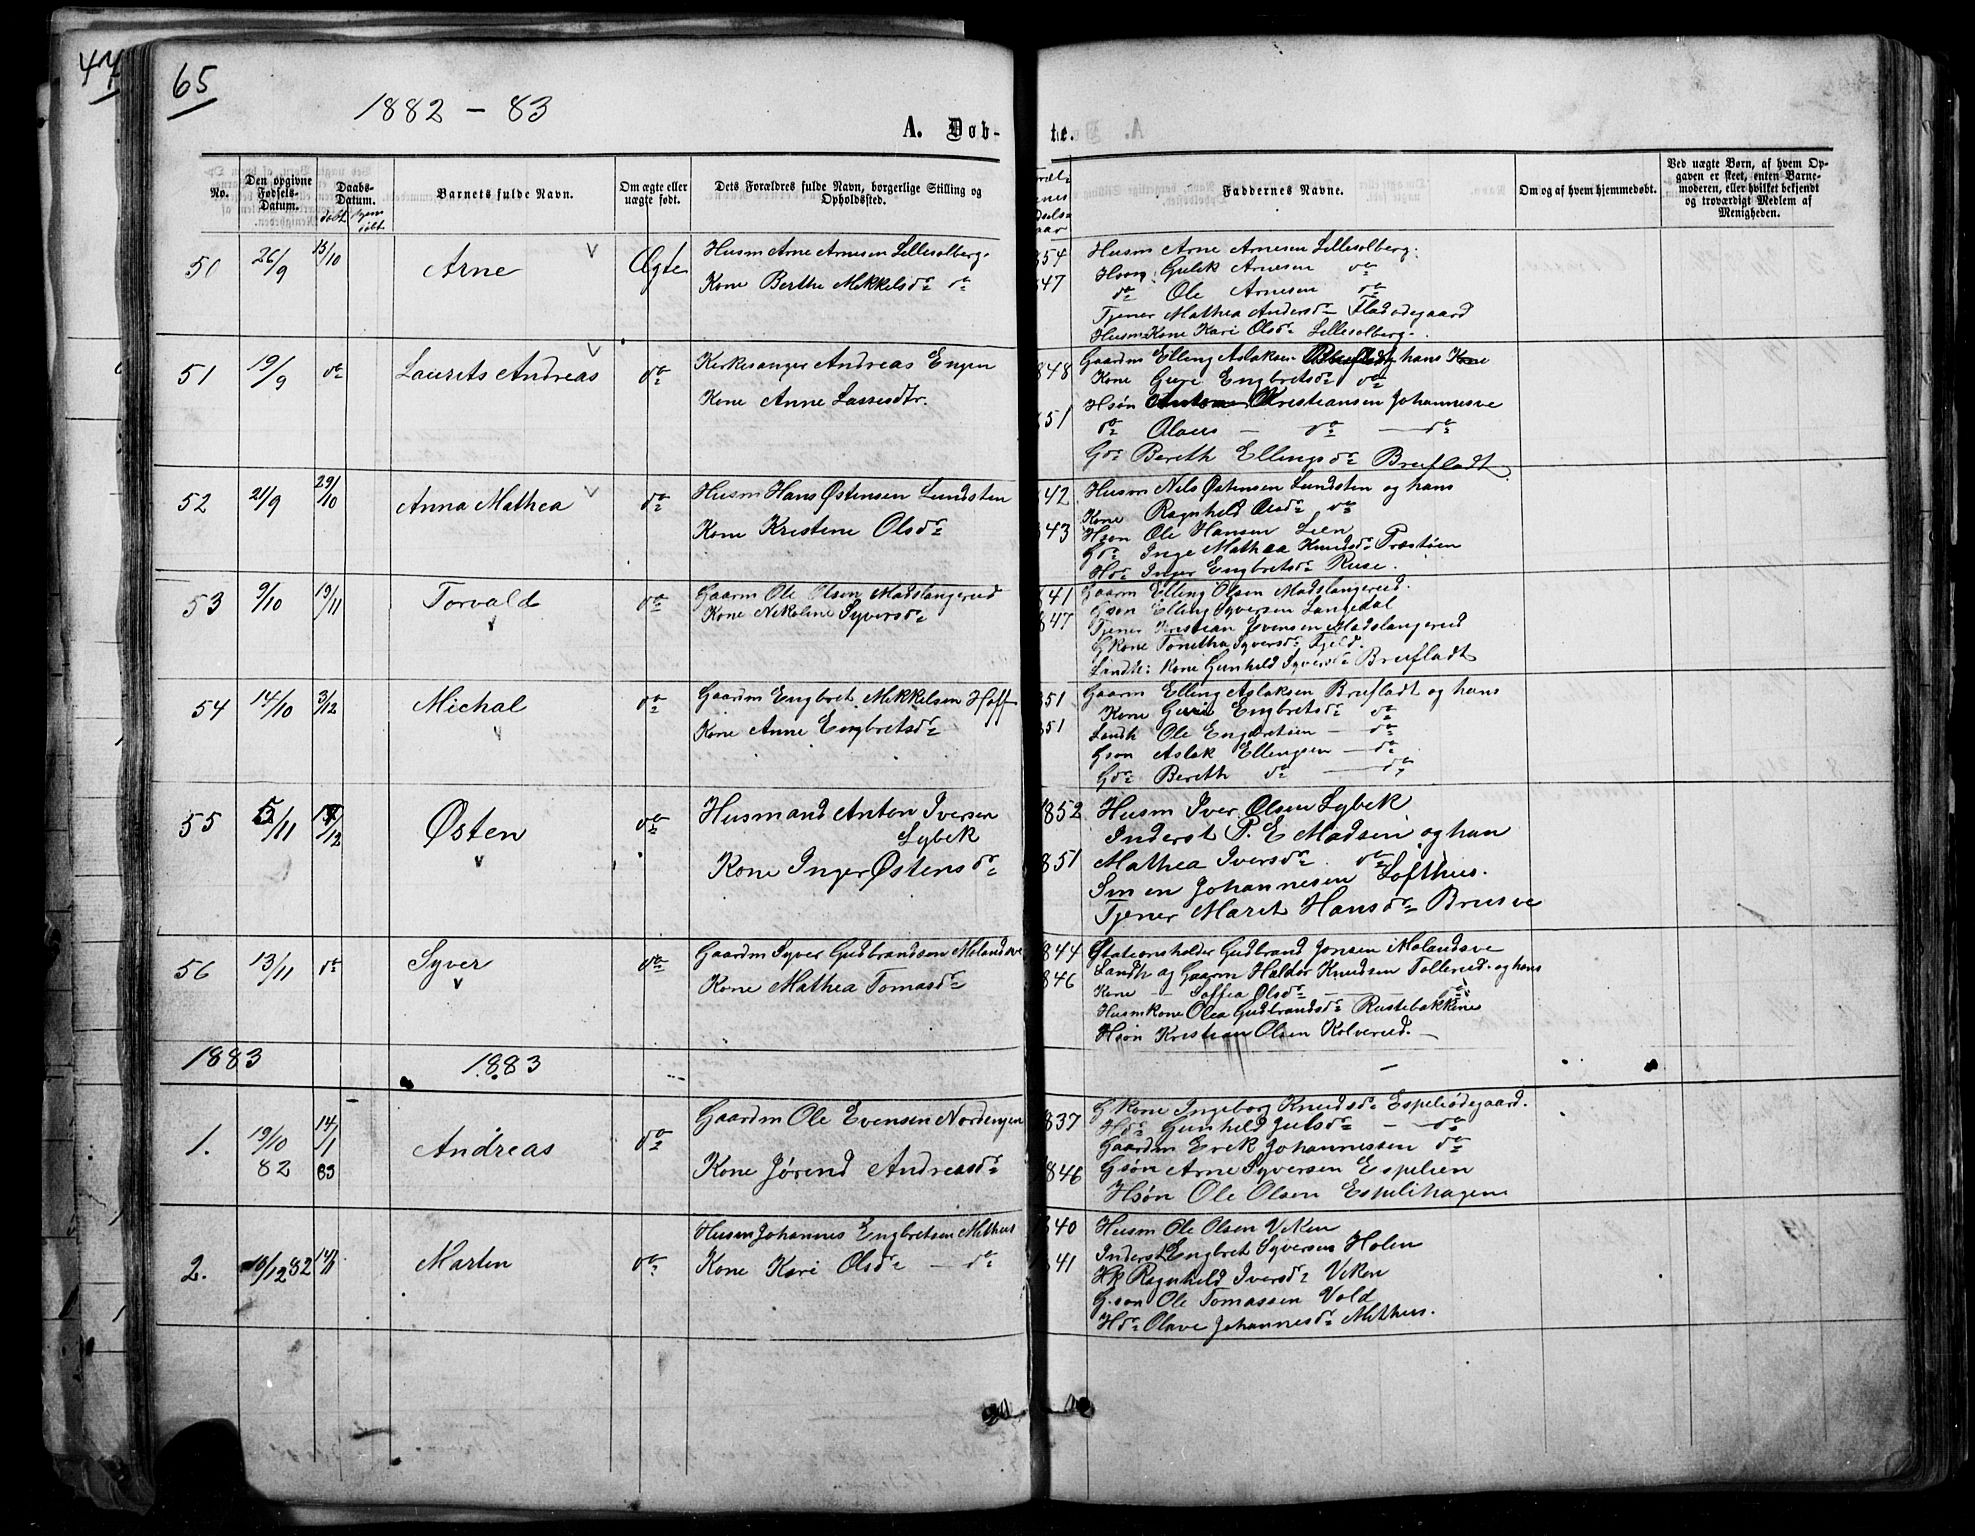 47
65
1882 - 83
A. Døb-
te.
No.
Den opgivne Fødsels-Datum.
Daabs-Datum.
døbt hjem døbt
Barnets fulde Navn.
Om ægte eller uægte født.
Dets Forældres fulde Navn, borgerlige Stilling og Opholdssted.
Faddernes Navne.
Om og af hvem hjemmedøbt.
Ved uægte Børn, af hvem Opgaven er skeet, enten Barnemoderen, eller hvilket bekjendt og troværdigt Medlem af Menigheden.
50 26/9 15/10 Arne Ægte
Husm Arne Arnesen Lillesolberg.
Kone Berthe Mikkelsdr do
854
847
Husm Arne Arnesen Lillesolberg.
Gulik Arnesen do
do Ole Arnesen do
Tjener Mathea Andersdr Fladødegaard
Husm: Kone Kari Olsdr Lillesolberg.
51 19/9 do Laurits Andreas do
Kirkesanger Andreas Engen
Kone Anne Lassesdtr.
848
851
Gaardm Elling Aslaksen Brufladt, hans Kone
Kone Guri Engbretsdr do
Hsøn Kristiansen Johannesve
do Olaus — do — do
Gdr Bereth Ellingsdr Brufladt
52 21/9 29/10 Anna Mathea do
Husm Hans Østensen Lundsten
Kone Kristene Olsdr
842
843
Husm Nils Østensen Lundsten og hans
Kone Ragnhild Olsdr do
Hsøn Ole Hansen Lien
Gdr Inge Mathea Knudsdr Præstøien
Hdr Inger Engbretsdr Ruse.
53 9/10 19/11 Torvald do
Gaarm Ole Olsen Madslangerud
Kone Nikoline Syversdr
841
847
Gaarm Elling Olsen Madslangerud.
Gson Elling Syversen Langedal
Tjener Kristian Evensen Madslangerud
Gkone Tonetha Syversdr Fjeld.
Landh: Kone Gunhild Syversdr Brufladt
54 14/10 3/12 Michal do
Gaardm Engbret Mikkelsen Hoff
Kone Anne Engbretsdr
851
851
Gaarm Elling Aslaksen Brufladt og hans
Kone Guri Engbretsdr do
Landh Ole Engbretsen — do
Gson Aslak Ellingsen — do
Gdr Bereth do — do
55 5/11 /12 Østen do
Husmand Anton Iversen
Lybek
Kone Inger Østensdr
1852
851
Husm Iver Olsen Lybek
Inderst P. E Madsen og han
Mathea Iversdr do
Simen Johannesen Lofthus.
Tjener Marit Hansdr Brusve
56 13/11 do Syver do
Gaardm Syver Gudbrandsen Molandsve
Kone Mathea Tomasdr
844
846
Stationsholder Gudbrand Jonsen Molandsve
Landh og Gaarm Haldor Knudsen Tollerud og hans
Kone — Saffea Olsdr — do
Husmkone Olea Gudbrandsdr Rustebakkene
Hsøn Kristian Olsen Kolverud. —
1883 1883
1. 19/10 82 14/1 83 Andreas do
Gaardm Ole Evensen Nordengen
Kone Jørend Andreasdr
837
1846
G kone Ingeborg Knudsdr Espeliødegaard.
Hdr Gunhild Julsdr — do
Gaardm Erek Johannessen do
Gsøn Arne Syversen Espelien
Hsøn Ole Olsen Espelihagen
2. 10/12 82 14/1 Marten do
Husm Johannes Engbretsen Mithus
Kone Kari Olsdr — do
840
841
Husm Ole Olsen Viken
Inderst Engbret Syversen Holen
Hk Ragnhild Iversdr Viken
G.søn Ole Tomassen Vold
Hdr Olave Johannesdr Mithus.